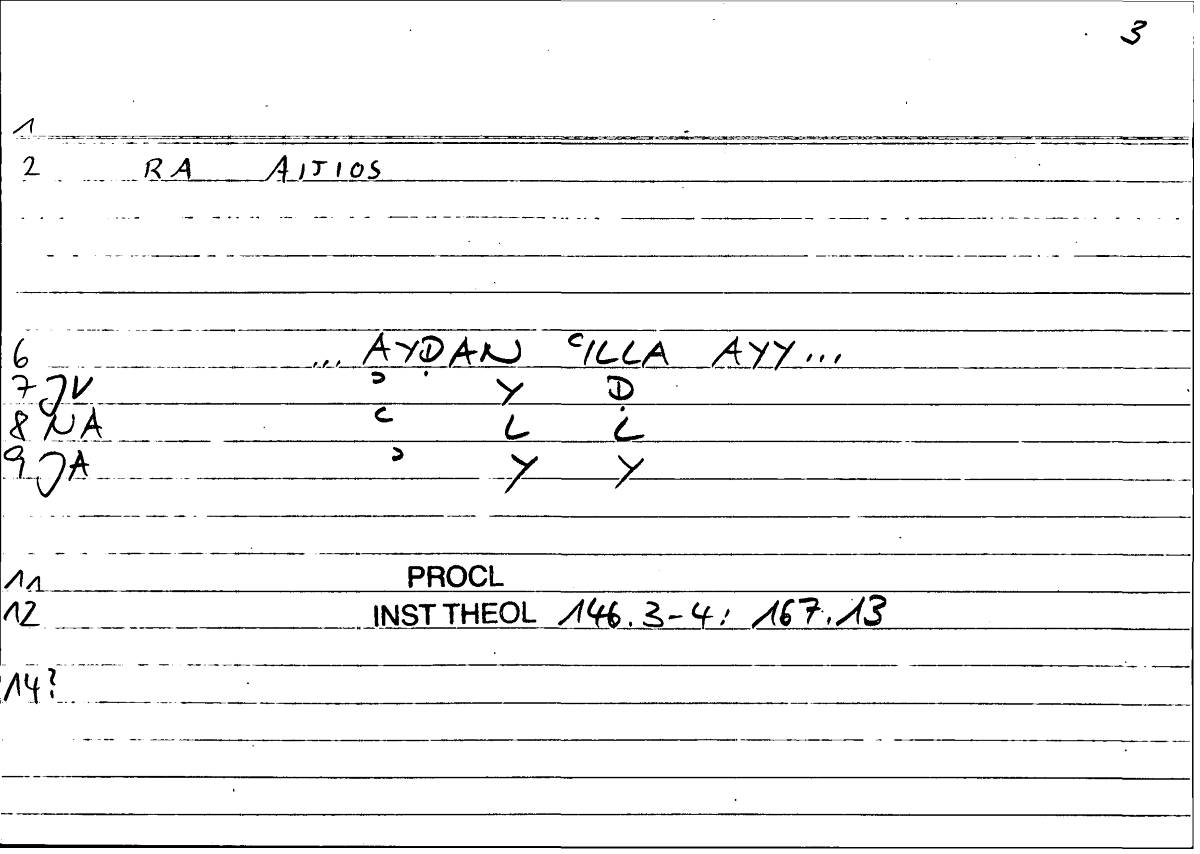 3
1
2 RA AITIOS
6 ... AYḌAN ʿILLA AYY...
7 JV ʾ Y Ḍ
8 NA ʿ L L
9 JA ʾ Y Y
11 PROCL
12 INST THEOL 146.3-4: 167.13
14?